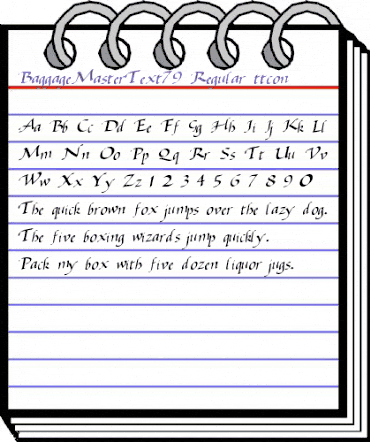 BaggageMasterText79 Regular ttcon
Aa Bb Cc Dd Ee Ff Gg Hh Ii Jj Kk Ll
Mm Nn Oo Pp Qq Rr Ss Tt Uu Vv
Ww Xx Yy Zz 1 2 3 4 5 6 7 8 9 0
The quick brown fox jumps over the lazy dog.
The five boxing wizards jump quickly.
Pack my box with five dozen liquor jugs.